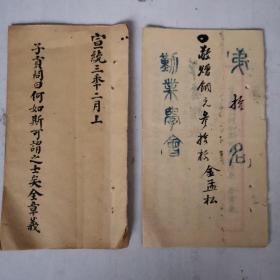 宣統三年十二月上
子貢問曰何如斯可謂之士矣全章義
第拾名
敬贈銅元叁拾枚 金孟松
勤業學會